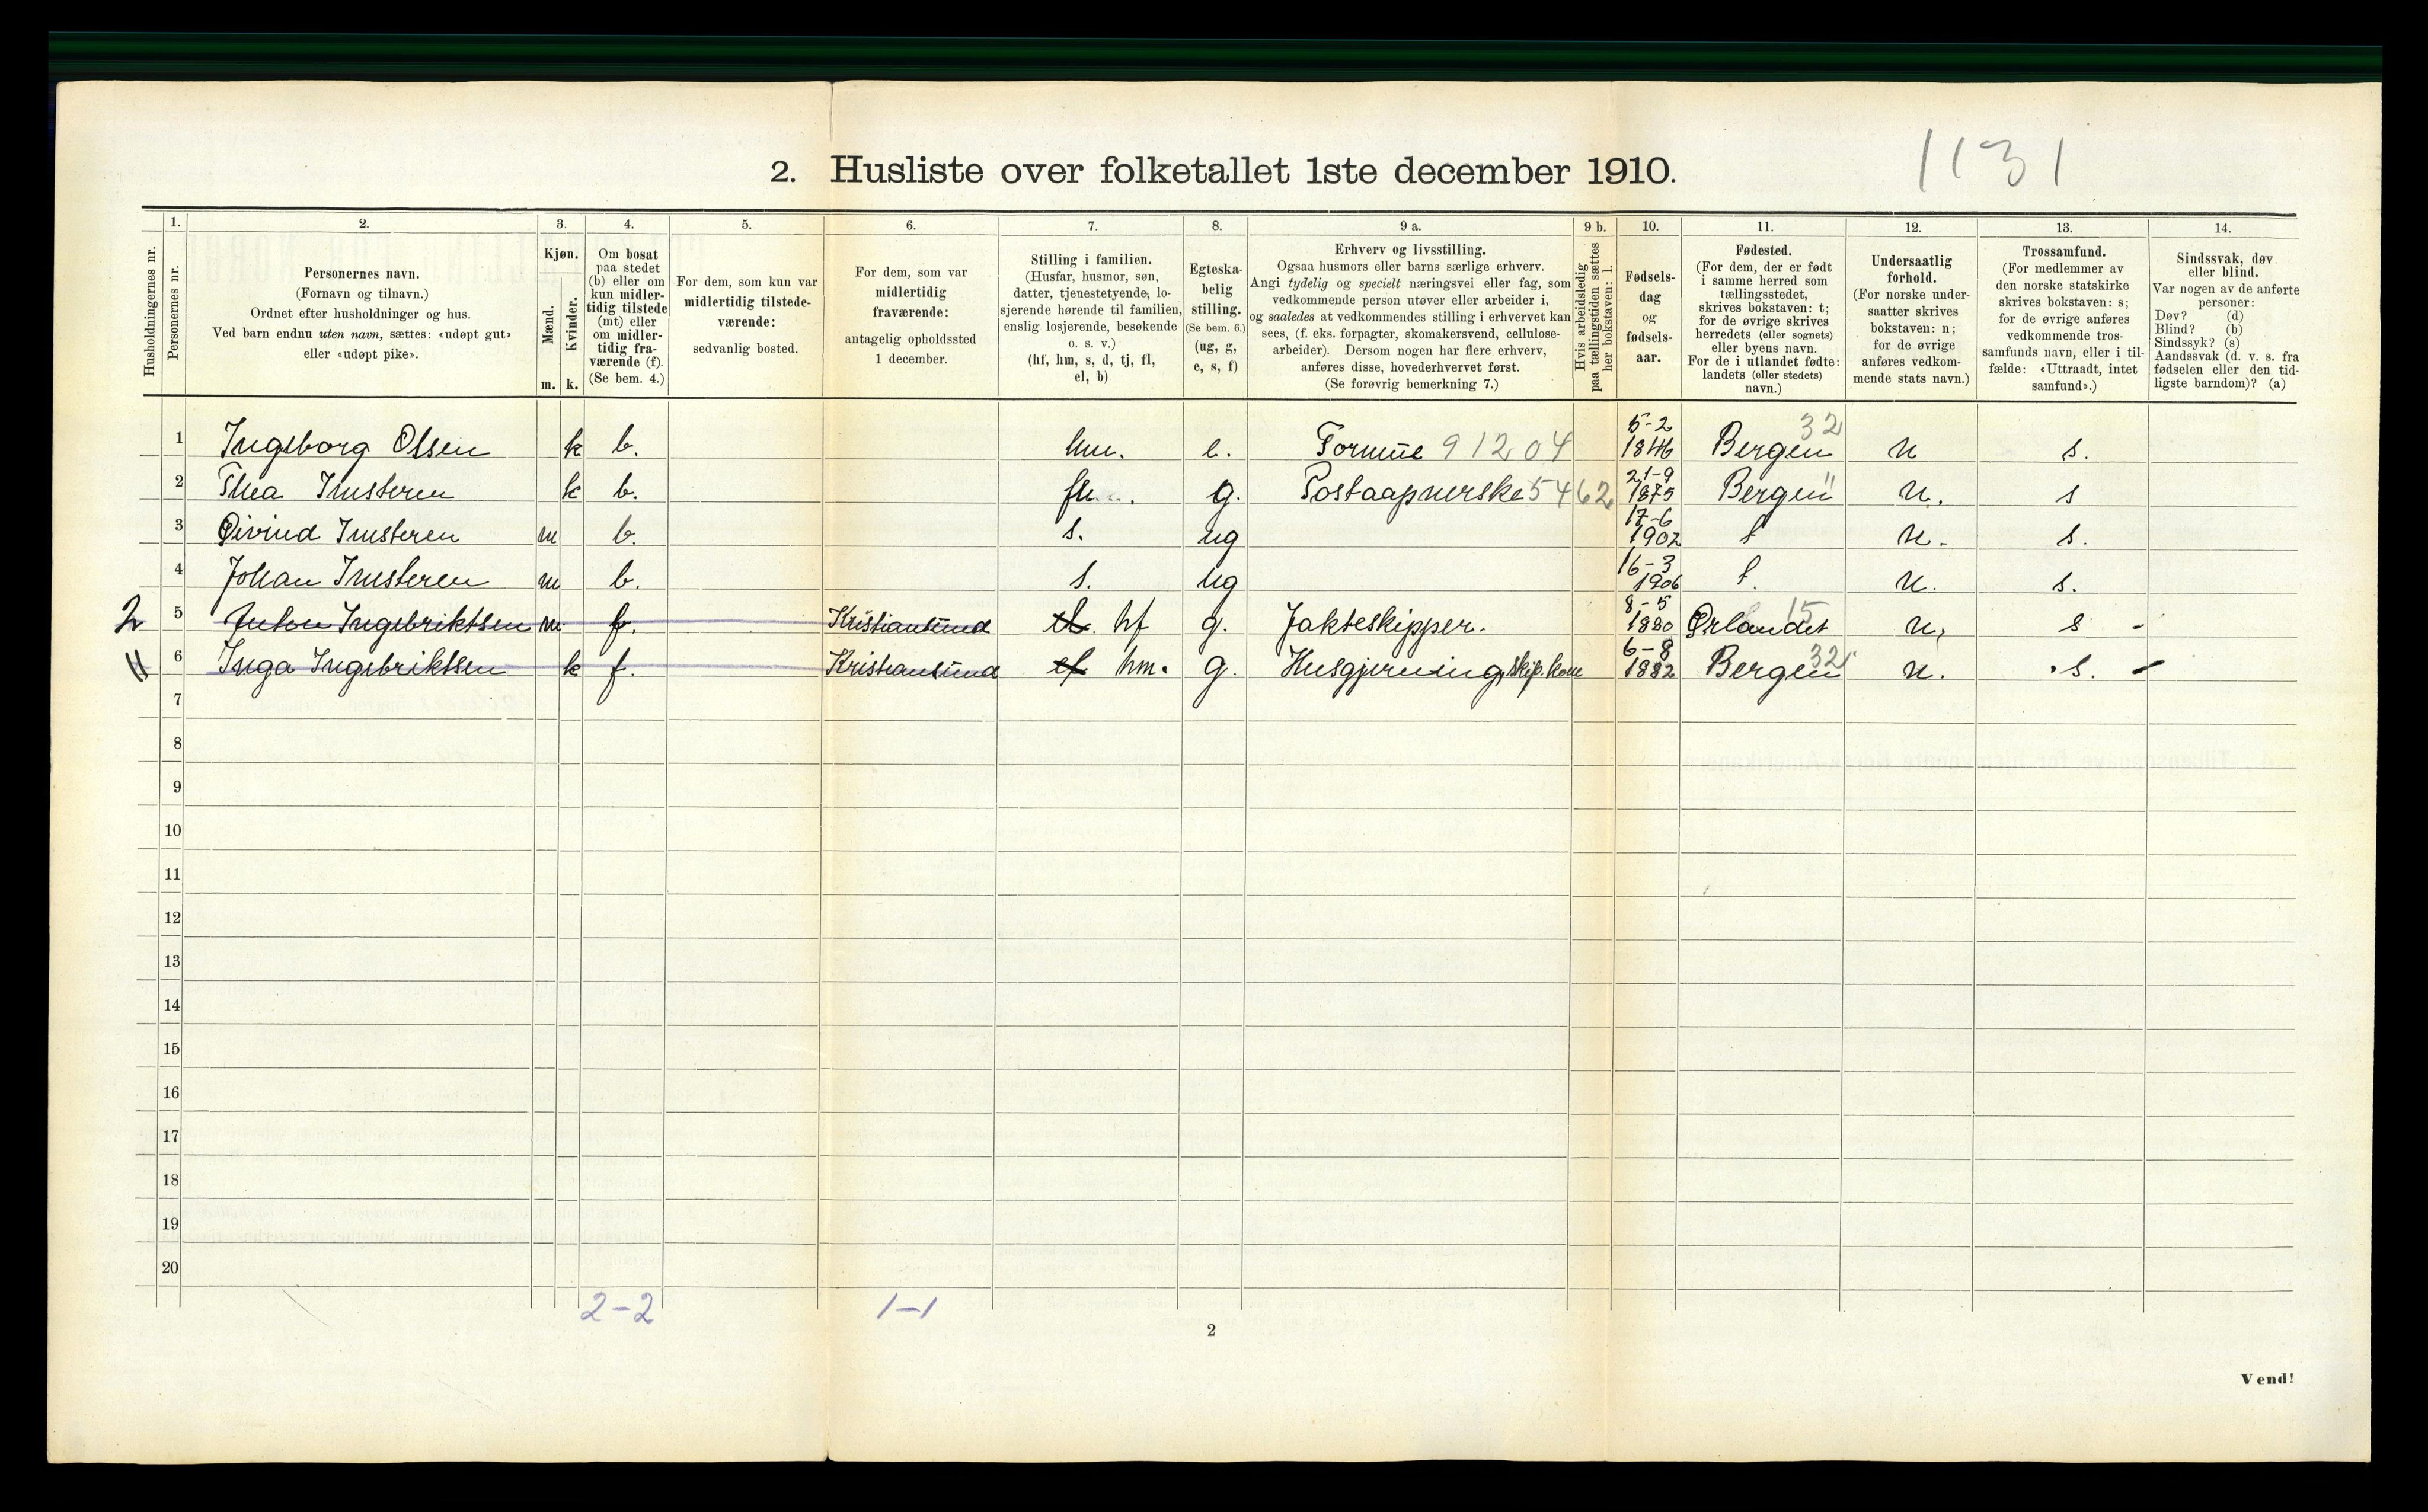 1131
2. Husliste over folketallet 1ste december 1910.
1. 2. 3. 4. 5. 6. 7. 8. 9 a. 9 b. 10. 11. 12. 13. 14.
Husholdningernes nr.
Personernes nr.
Personernes navn.
(Fornavn og tilnavn.)
Ordnet efter husholdninger og hus.
Ved barn endnu uten navn, sættes: «udøpt gut»
eller «udøpt pike».
Kjøn.
Mænd.
Kvinder.
m. k.
Om bosat
paa stedet
(b) eller om
kun midler-
tidig tilstede
(mt) eller
om midler-
tidig fra-
værende (f).
(Se bem. 4.)
For dem, som kun var
midlertidig tilstede-
værende:
sedvanlig bosted.
For dem, som var
midlertidig
fraværende:
antagelig opholdssted
1 december.
Stilling i familien.
(Husfar, husmor, søn,
datter, tjenestetyende, lo-
sjerende hørende til familien,
enslig losjerende, besøkende
o. s. v.)
(hf, hm, s, d, tj, fl,
el, b)
Egteska-
belig
stilling.
(Se bem. 6.)
(ug, g,
e, s, f)
Erhverv og livsstilling.
Ogsaa husmors eller barns særlige erhverv.
Angi tydelig og specielt næringsvei eller fag, som
vedkommende person utøver eller arbeider i,
og saaledes at vedkommendes stilling i erhvervet kan
sees, (f. eks. forpagter, skomakersvend, cellulose-
arbeider). Dersom nogen har flere erhverv,
anføres disse, hovederhvervet først.
(Se forøvrig bemerkning 7.)
Hvis arbeidsledig
paa tællingstiden sættes
her bokstaven: l.
Fødsels-
dag
og
fødsels-
aar.
Fødested.
(For dem, der er født
i samme herred som
tællingsstedet,
skrives bokstaven: t;
for de øvrige skrives
herredets (eller sognets)
eller byens navn.
For de i utlandet fødte:
landets (eller stedets)
navn.)
Undersaatlig
forhold.
(For norske under-
saatter skrives
bokstaven: n;
for de øvrige
anføres vedkom-
mende stats navn.)
Trossamfund.
(For medlemmer av
den norske statskirke
skrives bokstaven: s;
for de øvrige anføres
vedkommende tros-
samfunds navn, eller i til-
fælde: «Uttraadt, intet
samfund».)
Sindssvak, døv
eller blind.
Var nogen av de anførte
personer:
Døv? (d)
Blind? (b)
Sindssyk? (s)
Aandssvak (d. v. s. fra
fødselen eller den tid-
ligste barndom)? (a)
1 Ingeborg Olsen k b. hm. e. Formue 91204 5-2 1846 Bergen 32 n s.
2 Thea Imsteren k b. fl. g. Postaapnerske 5462 21-9 1875 Bergen " n. s
3 Øivind Imsteren m b. s. ug 17-6 1902 t n. s.
4 Johan Imsteren m b. s. ug 16-3 1906 t. n. s.
2 5 Anton Ingebriktsen m f. Kristiansund el. hf g. Jakteskipper. 8-5 1880 Ørlandet 15 n, s -
" 6 Inga Ingebriktsen k f. Kristiansund el hm. g. Husgjerning, skip. kone 6-8 1882 Bergen 32 n. s. -
7
8
9
10
11
12
13
14
15
16
17
18
19
20
2-2 1-1
2
Vend!